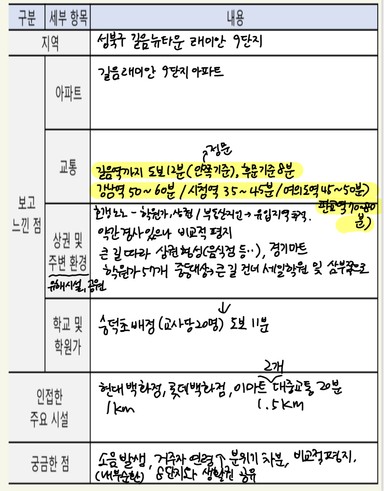 구분 세부 항목 내용
지역 성북구 길음뉴타운 래미안 9단지
아파트 길음래미안 9단지 아파트
정문
교통 길음역까지 도보 12분 (안쪽기준), 후문기준 8분
강남역 50~60분 / 시청역 35~45분 / 여의도역 45~50분)
판교역 70~80분)
보고 느낀 점
호갱노노 - 학원가, 상권 / 부동산지인 →
약간 경사 있으나 비교적 평지
상권 및 주변 환경 큰 길 따라 상권 형성(음식점 등..), 경기마트
학원가 57개 중등대상, 큰 길 건너 세일학원 및
유해시설, 공원
학교 및 학원가 숭덕초 배정 (교사당 20명) 도보 11분
2개
인접한 주요 시설 현대백화점, 롯데백화점, 이마트 대중교통 20분
1km 1.5km
궁금한 점 소음 발생, 거주자 연령↑ 분위기 차분, 비교적 평지.
(내부순환) 8단지와 생활권 공유